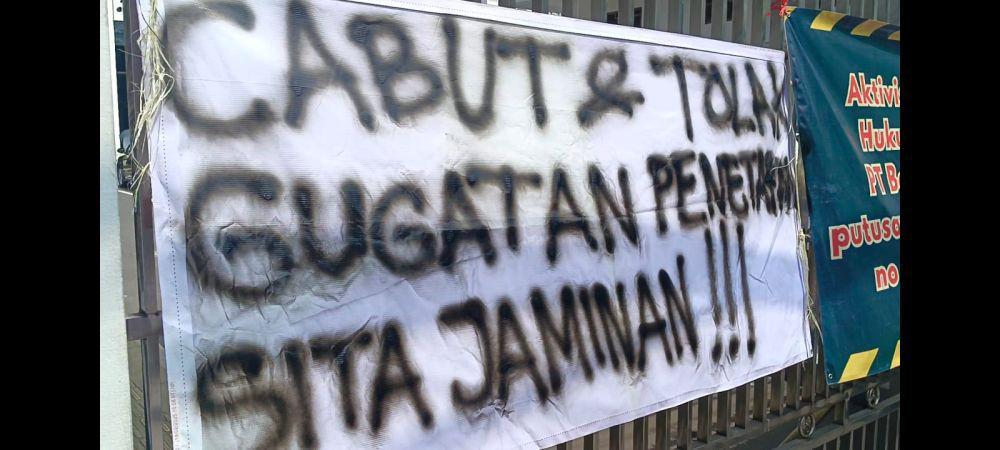 CABUT & TOLAK
GUGATAN PENETAPAN
SITA JAMINAN !!!
Aktivi
Huku
PT B
putus
no